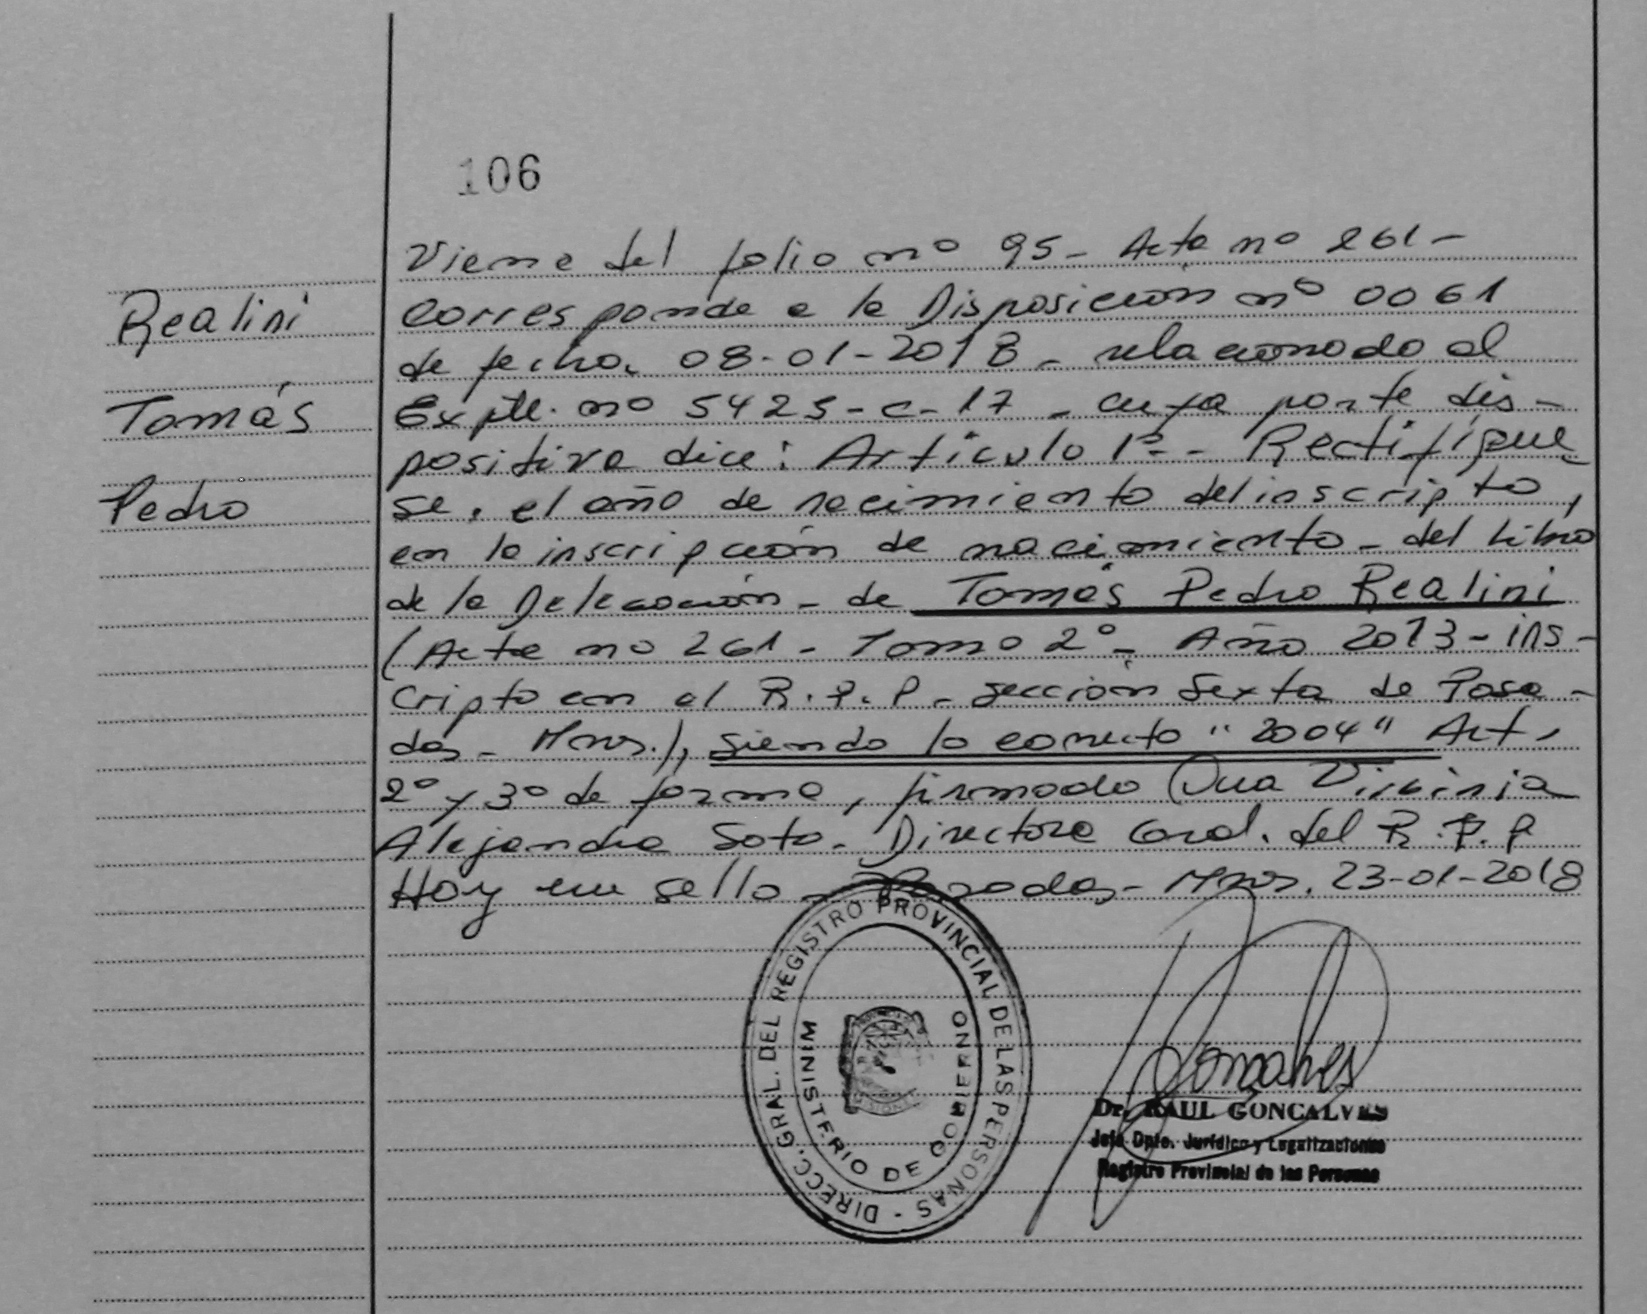 106
Viene del folio nº 95- Acta nº 261-
Corresponde a la Disposición nº 0061
de fecha, 08-01-2018- relacionado al
Expte. nº 5425-C-17- cuya parte dis-
positiva dice: Artículo 1º- Rectifíque
se, el año de nacimiento del inscripto,
en la inscripción de nacimiento- del libro
de la Delegación- de Tomás Pedro Realini
(Acta nº 261- Tomo 2º- Año 2013- ins-
cripto en el R.P.P- sección Sexta de Posa-
das- Mnes.), siendo lo correcto "2004" Art.
2º y 3º de forma, firmado Dra Virginia
Alejandra Soto- Directora Gral. del R.P.P
Hoy un sello- Posadas- Mnes. 23-01-2018
Realini
Tomás
Pedro
DIRECC. GRAL. DEL REGISTRO PROVINCIAL DE LAS PERSONAS -
MINISTERIO DE GOBIERNO
Goncalves
Dr. RAUL GONCALVES
Jefe Dpto. Jurídico y Legalizaciones
Registro Provincial de las Personas